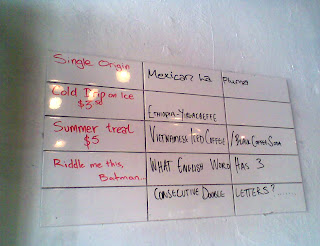 Single Origin
Mexican La Pluma
Cold Drip on Ice
$3
Ethiopia-Yirgacaeffe
Summer treat
$5
Vietnamese Iced Coffee / Black Coffee Soda
Riddle me this,
Batman...
What English Word Has 3
Consecutive Double Letters?......